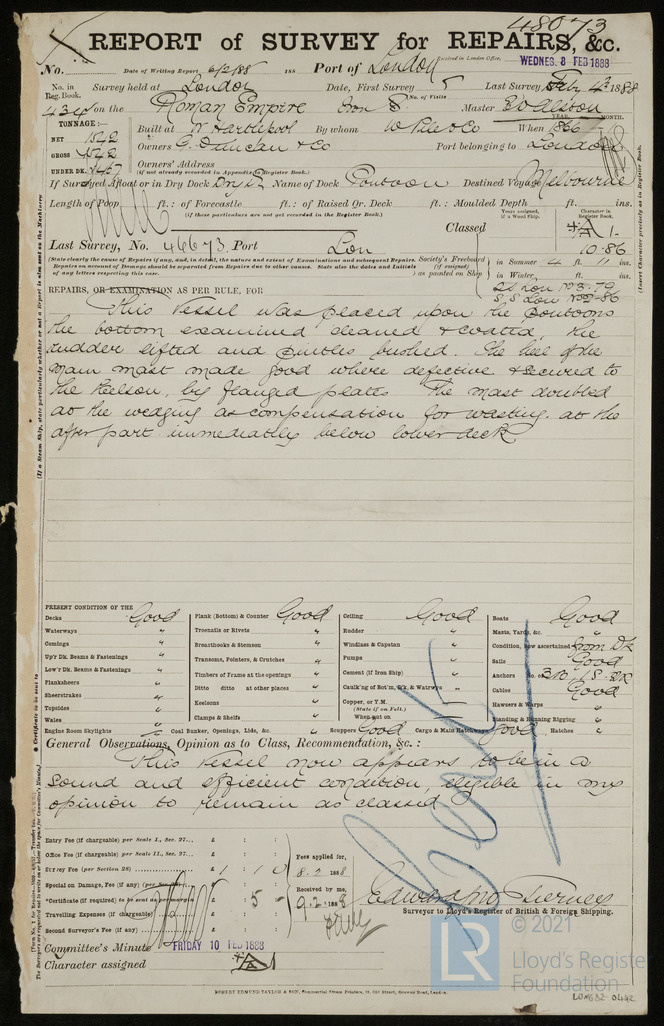 48073
REPORT of SURVEY for REPAIRS, &c.
No. Date of Writing Report 6/2/88 188 Port of London Received in London Office, WEDNES. 8 FEB 1888
No. in Reg. Book. Survey held at London Date, First Survey 5 No. of Visits Last Survey Feby 4th 1888
434 on the Roman Empire Iron S. Master
TONNAGE:— YEAR. MONTH.
NET 1542 Built at W Hartlepool By whom W Pile & Co When 1866
GROSS 1542 Owners G. Duncan & Co Port belonging to London
UNDER DK. 1467 Owners' Address
(if not already recorded in Appendix to Register Book.)
If Surveyed Afloat or in Dry Dock Dry Dk Name of Dock Pontoon Destined Voyage Melbourne
Length of Poop ft.: of Forecastle ft.: of Raised Qr. Deck ft.: Moulded Depth ft. ins.
(if these particulars are not yet recorded in the Register Book.)
Years assigned, if a Wood Ship. Character in Register Book.
Classed A 1-
Last Survey, No. 46673 Port Lon 10.86
(State clearly the cause of Repairs if any, and, in detail, the nature and extent of Examinations and subsequent Repairs. Repairs on account of Damage should be separated from Repairs due to other causes. State also the dates and Initials of any letters respecting this case.
Society's Freeboard (if assigned) as painted on Ship in Summer 4 ft. 11 ins.
in Winter ft. ins.
REPAIRS, OR EXAMINATION AS PER RULE, FOR
SS Lon No 3-79
S.S Lon No 2-86
This Vessel was placed upon the pontoons
the bottom examined cleaned & coated, the
rudder lifted and pintles bushed. The heel of the
main mast made good where defective & secured to
the Keelson, by flanged plates the mast doubled
at the wedging as compensation for wasting. at the
after part immediately below lower deck.
PRESENT CONDITION OF THE
Decks Good Plank (Bottom) & Counter Good Ceiling Good Boats Good
Waterways " Treenails or Rivets " Rudder " Masts, Yards, &c. "
Comings " Breasthooks & Stemson " Windlass & Capstan " Condition, how ascertained from Dk
Up'r Dk. Beams & Fastenings " Transoms, Pointers, & Crutches " Pumps " Sails Good
Low'r Dk. Beams & Fastenings " Timbers of Frame at the openings " Cement (if Iron Ship) " Anchors No. of 3B, 1S. 2K
Planksheers " Ditto ditto at other places " Caulk'ng of Bot'm, D'k & Watrw'ys " Cables Good
Sheerstrakes " Keelsons " Copper, or Y.M. Hawsers & Warps "
Topsides " Clamps & Shelfs " (State if on Felt.) Standing & Running Rigging "
Wales " When put on
Engine Room Skylights " Coal Bunker, Openings, Lids, &c. " Scuppers Good Cargo & Main Hatchways Good Hatches "
General Observations, Opinion as to Class, Recommendation, &c. :
This vessel now appears to be in a
sound and efficient condition, eligible in my
opinion to remain as classed
Entry Fee (if chargeable) per Scale I., Sec. 27... £ : :
Office Fee (if chargeable) per Scale II., Sec. 27... £ : : Fees applied for,
Survey Fee (per Section 28) £ 1 : 1 : 0 8.2.1888
Special on Damage, Fee (if any) (per Section 28) £ : : Received by me,
*Certificate (if required) to be sent as per margin £ : 5 : - 9.2.1888
Travelling Expenses (if chargeable) £ : :
Second Surveyor's Fee (if any) £ : :
Surveyor to Lloyd's Register of British & Foreign Shipping.
Committee's Minute FRIDAY 10 FEB 1888
Character assigned A 1
ROBERT EDMUND TAYLOR & SON, Commercial Steam Printers, 19, Old Street, Goswell Road, London.
© 2021
LR
Lloyd's Register
Foundation
LON682-0442